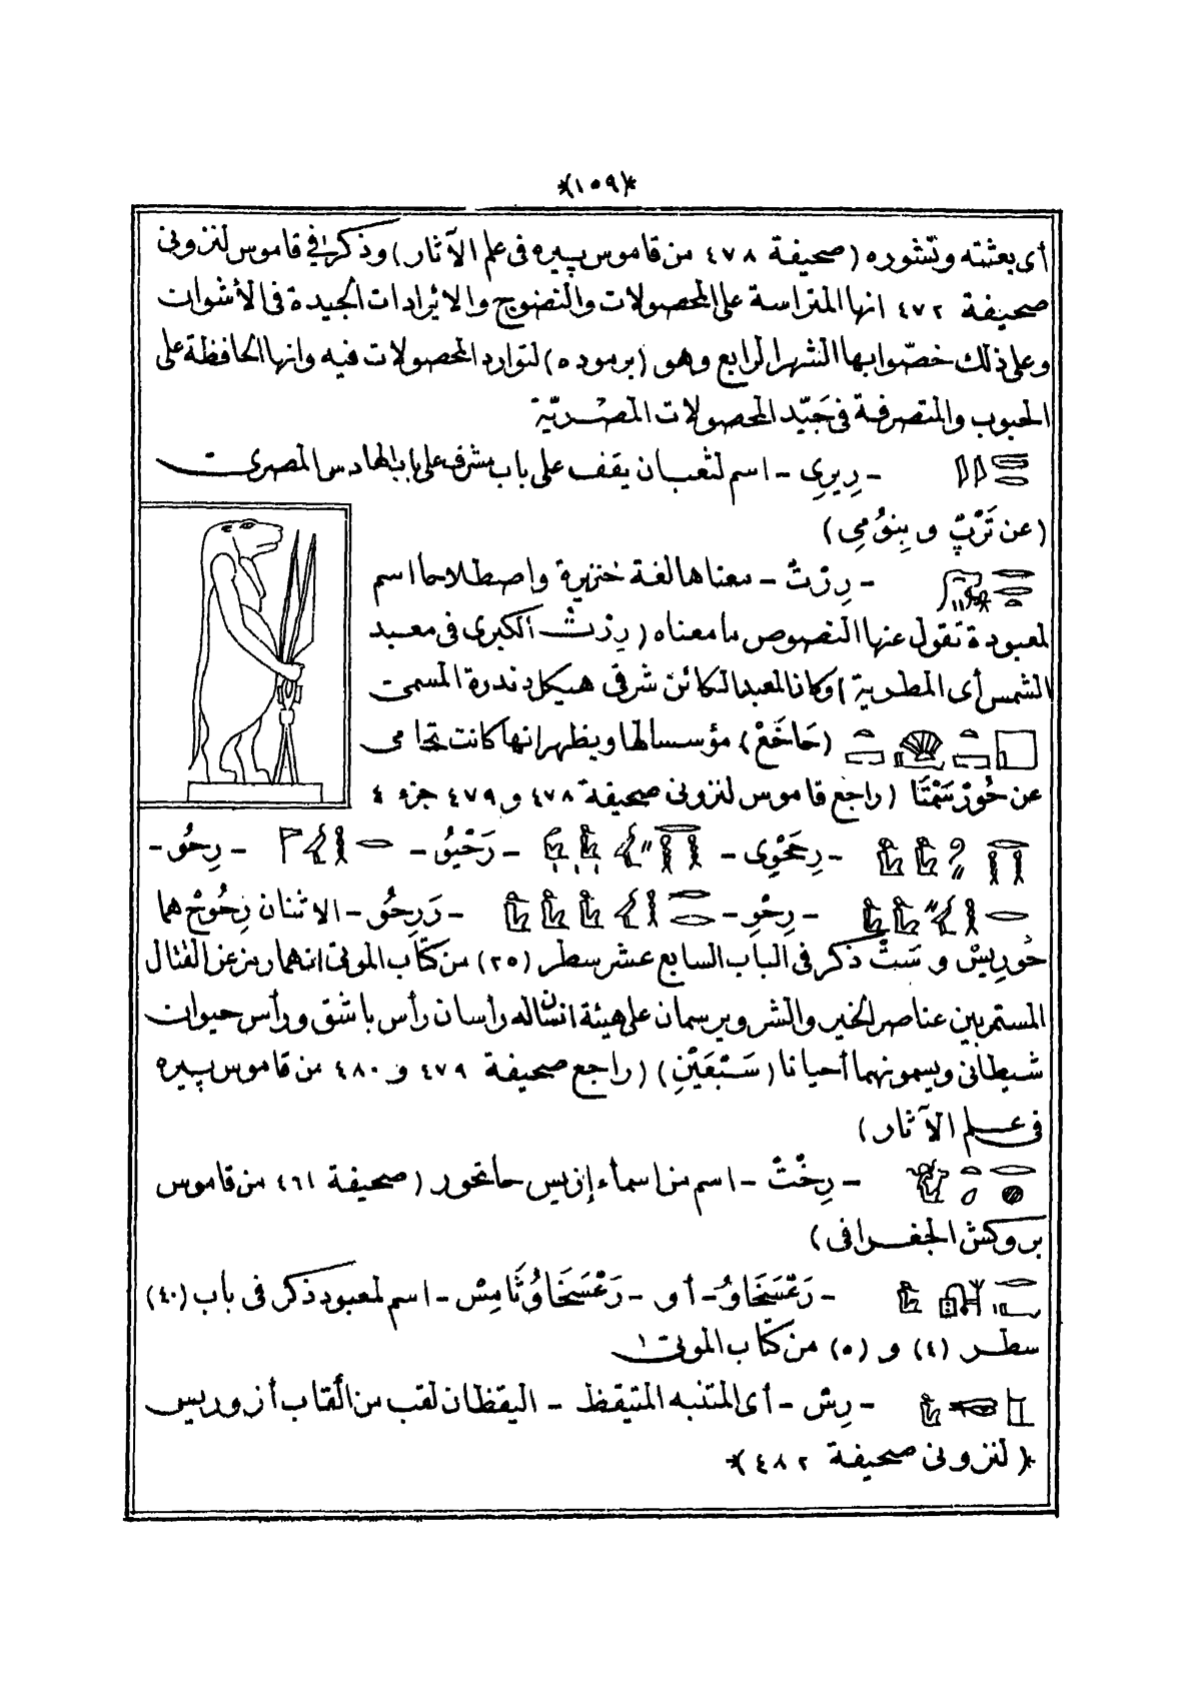 *(١٥٩)*
أى بعثته ونشوره (صحيفة ٤٧٨ من قاموس پييره فى علم الآثار) وذكر فى قاموس لنزونى
صحيفة ٤٧٢ انها المتراسة على المحصولات والنضوج والايرادات الجيدة فى الأشوات
وعلى ذلك خصّوا بها الشهر الرابع وهو (برموده) لتوارد المحصولات فيه وانها الحافظة على
الحبوب والمتصرفة فى جَيّد المحصولات المصريّة
- رِيرِى - اسم لثعبان يقف على باب مشرف على باب الهادس المصرى
(عن تَرْبّ و بِنوُمِى)
- رِرْتْ - معناها لغة خنزيرة واصطلاحا اسم
لمعبودة تقول عنها النصوص ما معناه (رِرْتْ الكبرى فى معبد
الشمس أى المطرية) وكان المعبد الكائن شرقى هيكل دندرة المسمى
(حَاخَعْ) مؤسسا لها ويظهر انها كانت تحامى
عن حُورْسَمْتَا (راجع قاموس لنزونى صحيفة ٤٧٨ و ٤٧٩ جزء ٤
- رِحَحْوِى - - رَحْيوُ - - رِحُو -
- رِحْوِ - - رَرِحُو - الاثنان رِحُوحْ هما
حُورِيسْ و سَتْ ذكر فى الباب السابع عشر سطر (٢٥) من كتاب الموتى انهما رمز عن القتال
المستمر بين عناصر الخير والشر ويرسمان على هيئة انسان له رأسان رأس باشق ورأس حيوان
شيطانى ويسمونهما أحيانا (سَبْعَيْنِ) (راجع صحيفة ٤٧٩ و ٤٨٠ من قاموس پييره
فى علم الآثار)
- رِخْتْ - اسم من اسماء إزيس حاتحور (صحيفة ٤٦١ من قاموس
بروكش الجغرافى)
- رَعْسَخَاوُ - أو - رَعْسَخَاوُثَامِسْ - اسم لمعبود ذكر فى باب (٤٠)
سطر (٤) و (٥) من كتاب الموتى
- رِسْ - أى المتنبه المتيقظ - اليقظان لقب من ألقاب أزوريس
*(لنزونى صحيفة ٤٨٢)*